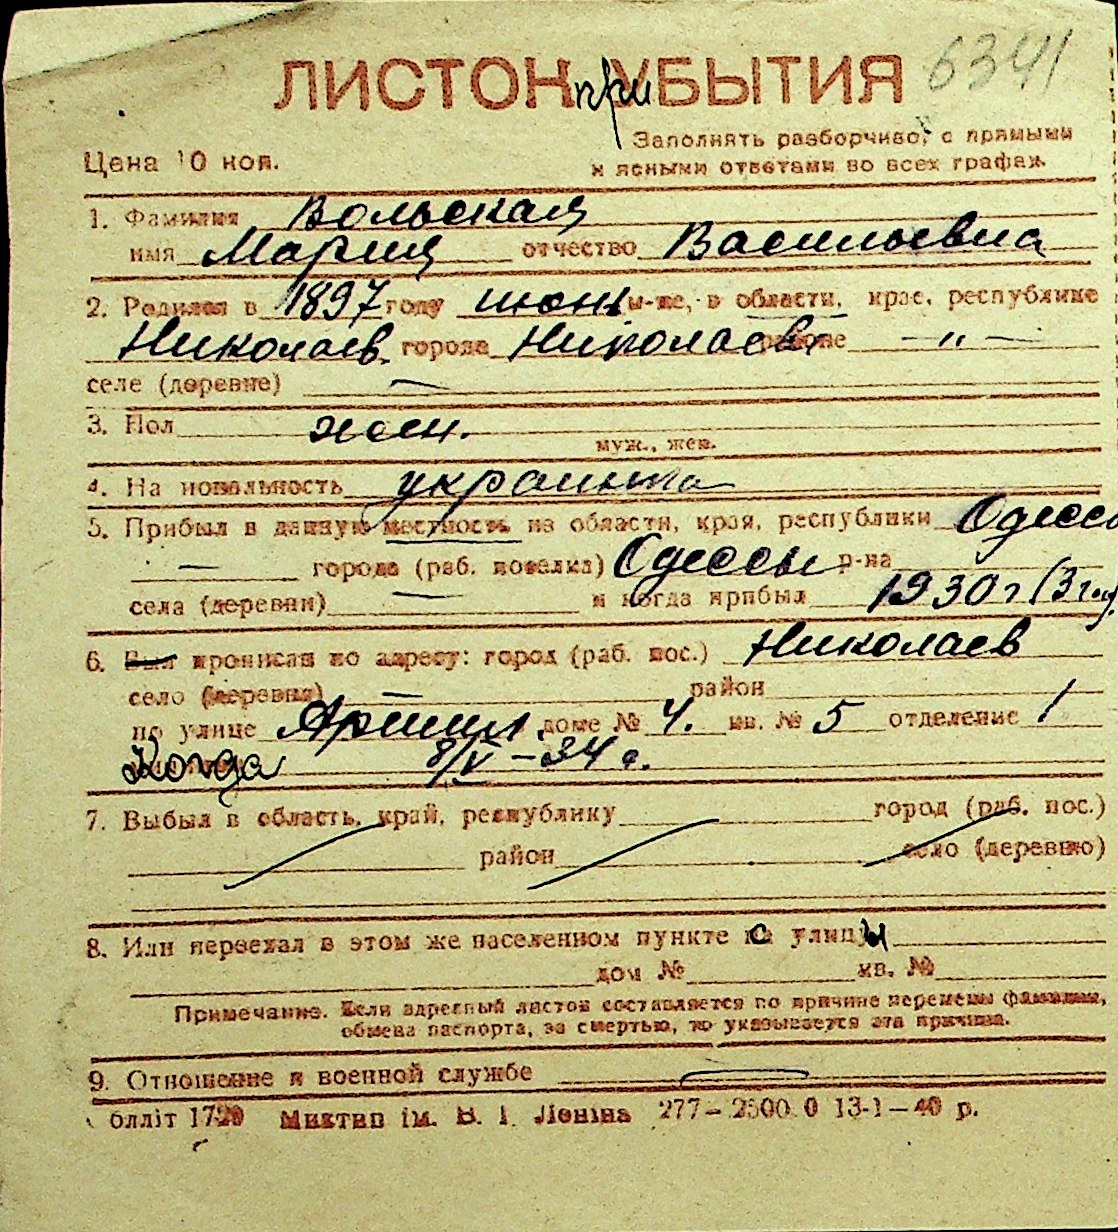 6341
ЛИСТОК при УБЫТИЯ
Заполнять разборчиво, с прямыми
Цена 10 коп.
и ясными ответами во всех графах.
1. Фамилия Вольская
имя Мария отчество Васильевна
2. Родился в 1897 году июня м-це, в области, крае, республике
Николаев. города Николаева районе — „ —
селе (деревне) —
3. Пол жен.
муж., жен.
4. Национальность украинка
5. Прибыл в данную местность из области, края, республики Одесс
— города (раб. поселка) Одессы р-на
села (деревни) — и когда прибыл 1930 г
6. Был прописан по адресу: город (раб. пос.) Николаев
село (деревня) — район
по улице доме № 4. кв. № 5 отделение 1
Когда 8/V – 34 г.
7. Выбыл в область, край, республику город (раб. пос.)
район село (деревню)
8. Или переехал в этом же населенном пункте с улицы
дом № кв. №
Примечание. Если адресный листок составляется по причине перемены фамилии,
обмена паспорта, за смертью, то указывается эта причина.
9. Отношение к военной службе —
ім. В. І. Леніна 277 – 2500.0 13-1 – 40 р.